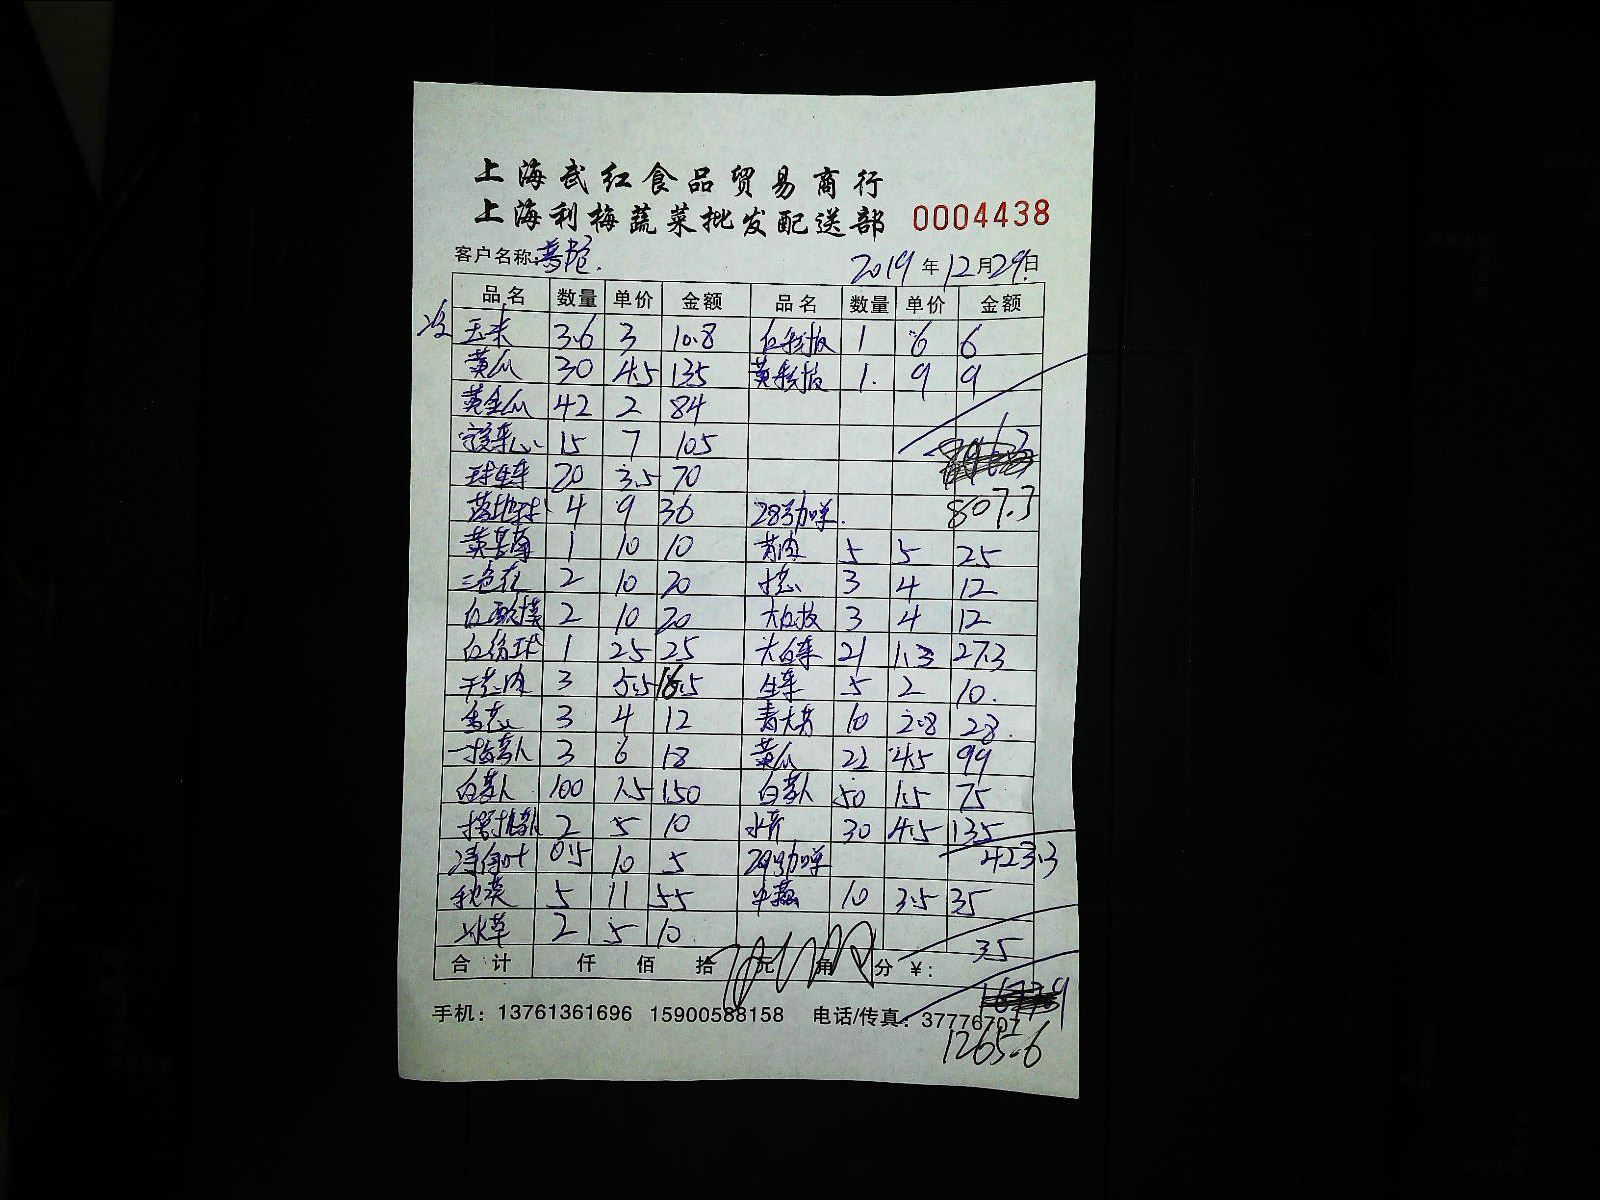 上海武红食品贸易商行
上海利梅蔬菜批发配送部 0004438
客户名称: 2019年12月29日
品名 数量 单价 金额 品名 数量 单价 金额
玉米 3.6 3 10.8 红彩椒 1 6 6
黄瓜 30 4.5 135 黄彩椒 1. 9 9
黄金瓜 42 2 84
菜心 15 7 105
球生菜 20 3.5 70
4 9 36 28号加单. 807.3
黄苦菊 1 10 10 5 5 25
三色花 2 10 20 3 4 12
2 10 20 大红椒 3 4 12
1 25 25 大白菜 21 1.3 27.3
3 5.5 16.5 生菜 5 2 10.
香葱 3 4 12 青大 10 2.8 28.
3 6 18 黄瓜 22 4.5 99
白萝卜 100 1.5 150 白萝卜 50 1.5 75
2 5 10 水芹 30 4.5 135
0.5 10 5 29号加单 423.3
5 11 55 10 3.5 35
冰草 2 5 10. 35
合计 仟 佰 拾 元 角 分 ¥:
手机: 13761361696 15900588158 电话/传真: 37776707
1265.6